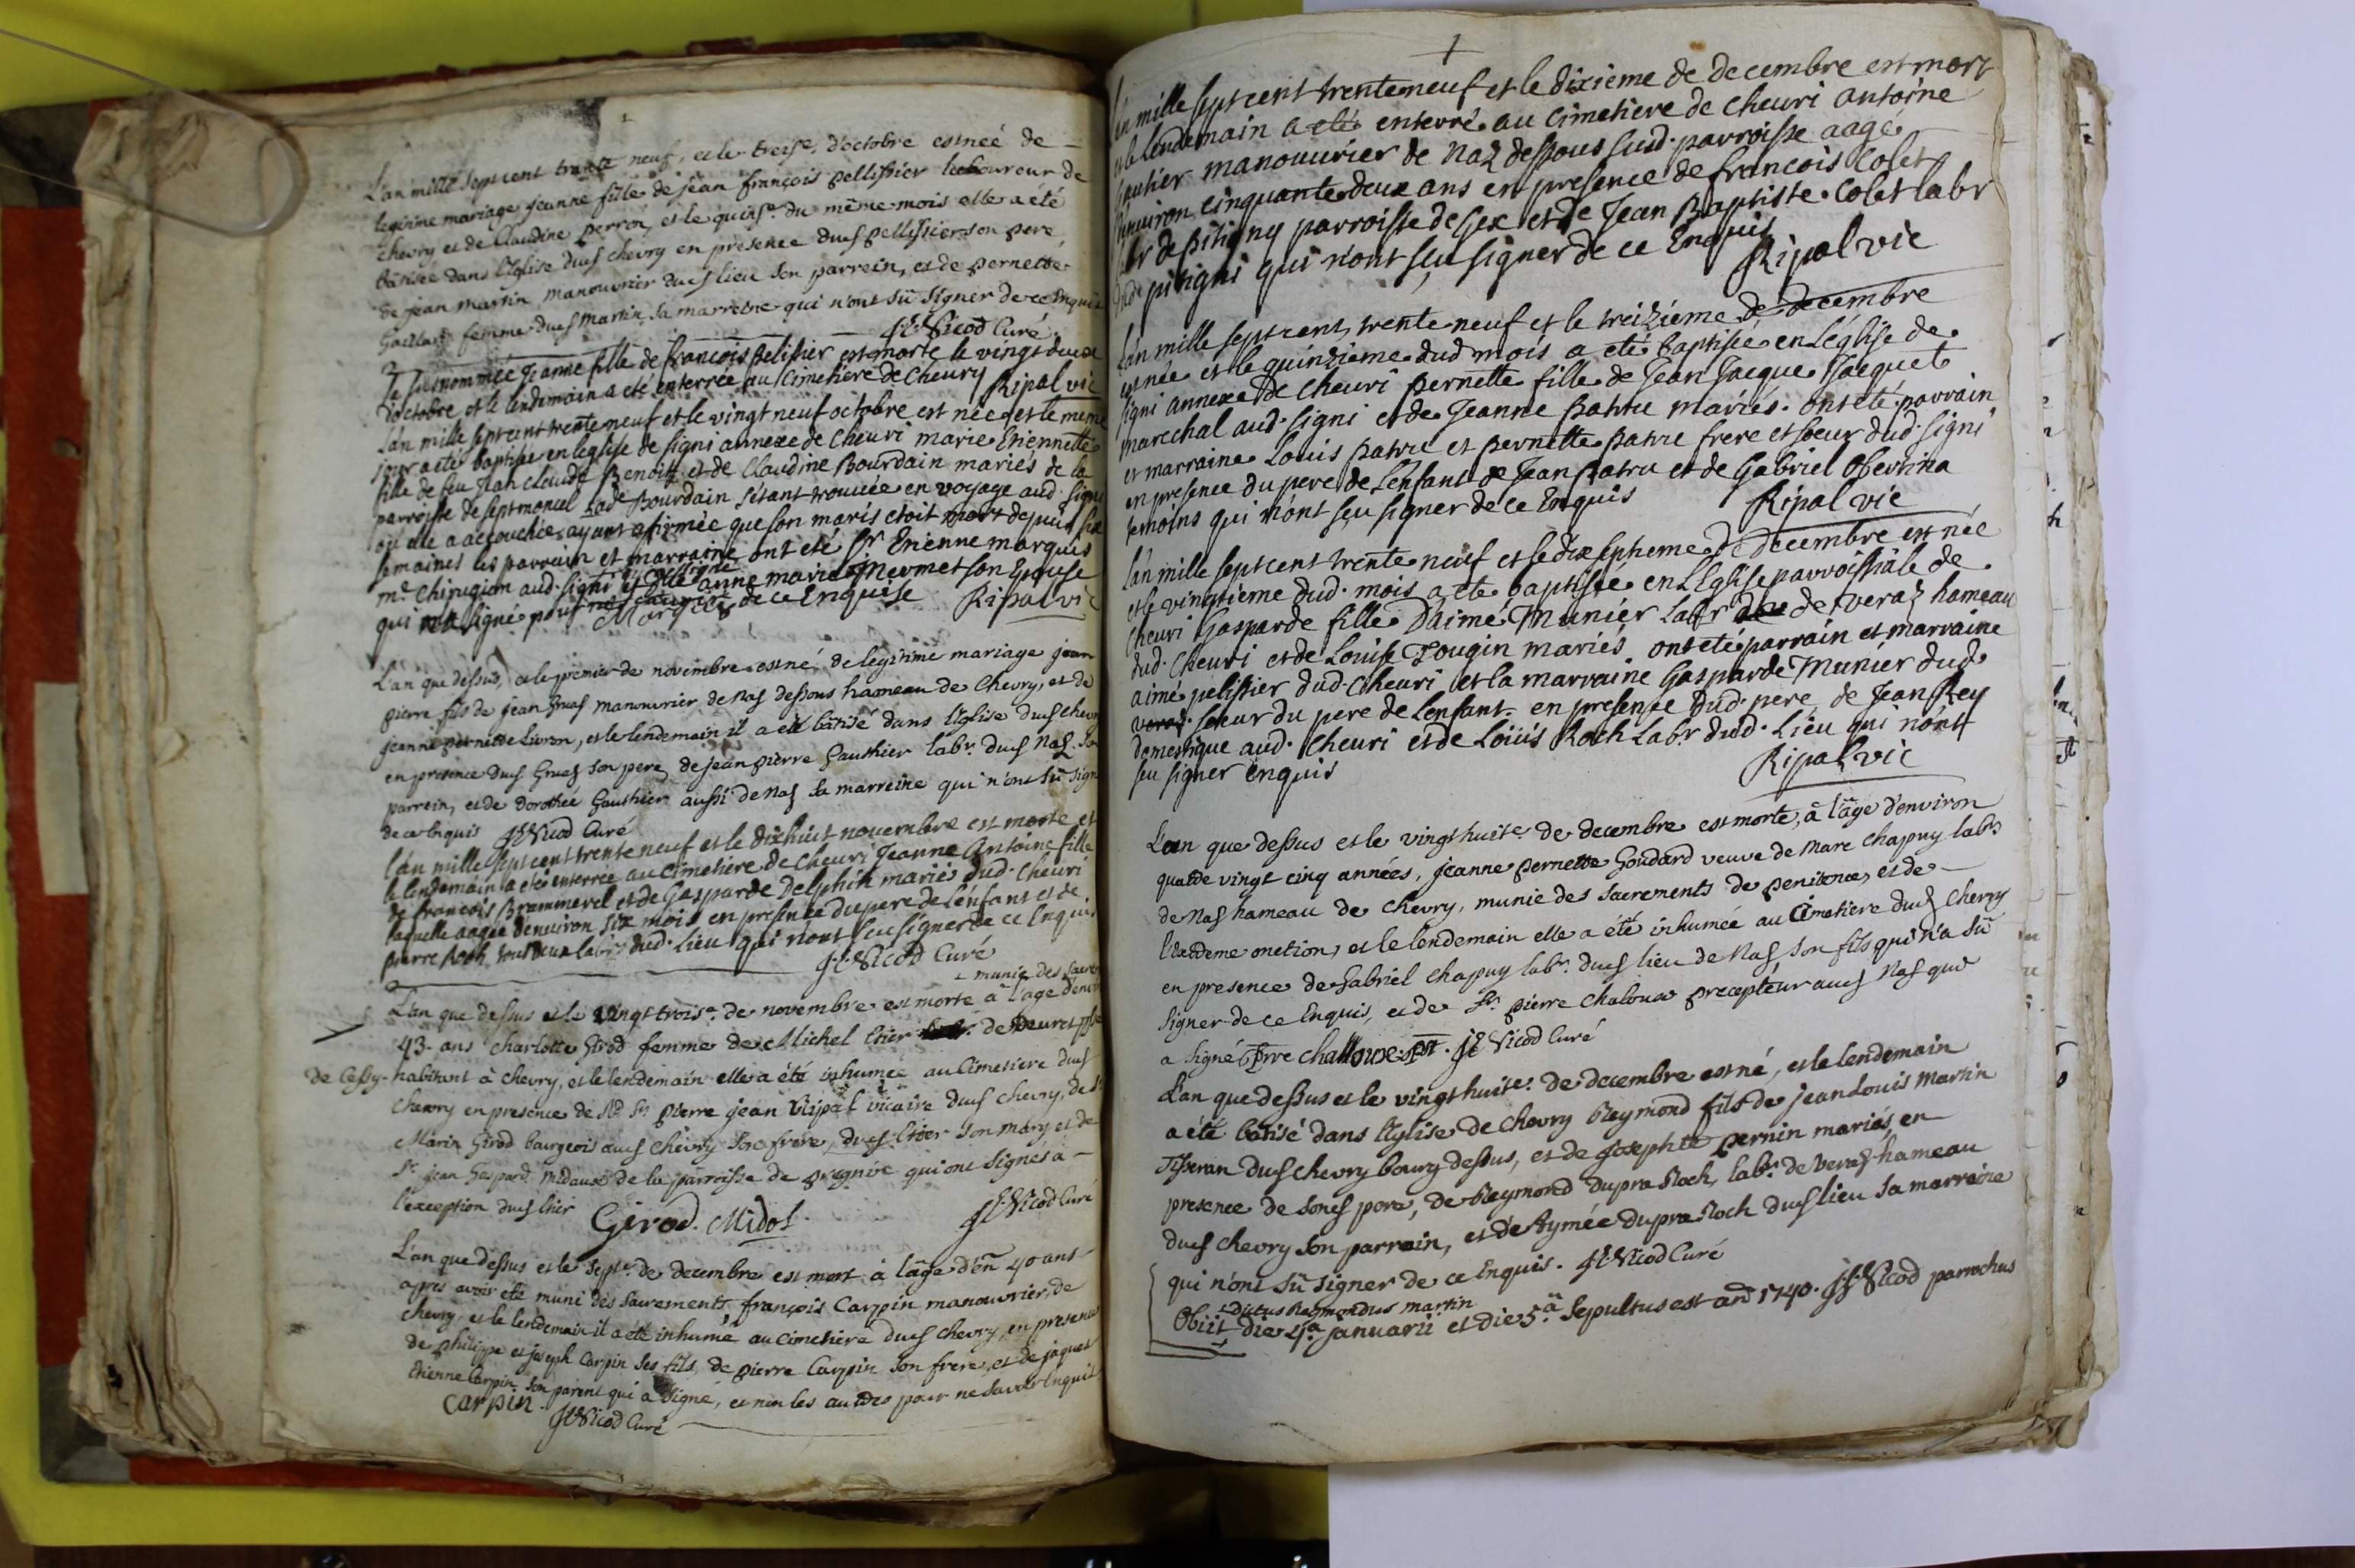 L'an mille sept cent trente neuf, et le treise. d'octobre est née de
legitime mariage jeanne fille de jean françois pellissier laboureur de
chevry, et de Claudine perron, et le quinse. du même mois elle a été
bâtisée dans l'Eglise dud chevry en presence dud pellissier son pere,
de jean martin manouvrier dud lieu son parrein, et de pernette
Gaillard femme dud Martin sa marreine qui n'ont sû signer de ce Enquis
Nicod Curé
La susnommée Jeanne fille de francois pelissier est morte le vingt deux
d'octobre et le lendemain a eté enterrée au Cimetiere de Cheury Ripal vic
L'an mille sept cent trente neuf et le vingt neuf octobre est née et le meme
jour a eté baptisée en l'eglise de signi annexe de Cheuri marie Etiennette
fille de feu Jean Claude Benoitt et de Claudine Bourdain mariés de la
parroisse de septmoncel lad Bourdain s'étant trouuée en voyage aud. signi
ou elle a accouchée ayant afirmée que son maris etoit mort depuis six
semaines les parrain et marraine ont eté Sr Etienne marquis
me. Chirugien aud. signi et Delle anne marie mermet son Epouse
qui signé pour de ce Enquise Ripal vic
Marquis
L'an que dessus, et le premier de novembre est né de legitime mariage jean
pierre fils de jean Gruaz manouvrier de Naz dessous hameau de Chevry, et de
jeanne pernette Livron, et le lendemain il a été bâtisé dans l'Eglise dud chevry
en presence dud Gruaz son pere, de jean pierre Gauthier labr. dud Naz son
parrein, et de Dorothée Gauthier aussi de Naz sa marreine qui n'ont sû signer
de ce Enquis Nicod Curé
L'an mille sept cent trente neuf et le dixhuit nouembre est morte et
le lendemain a eté enterrée au cimetiere de Cheuri Jeanne Antoine fille
de francois Brammerel et de Gasparde Delphin mariés dud. Cheuri
laquelle aagée d'enuiron six mois en presence du pere de l'enfant et de
pierre Roch tout deux labrs dud. Lieu qui n'ont seu signer de ce Enquis
Nicod Curé
munie des sacre
L'an que dessus et le vingt troise. de novembre est morte à l'âge d'environ
43. ans charlotte Girod femme de Michel Etier de
de Cessy- habitant à chevry, et le lendemain elle a été inhumée au Cimetiere dud
chevry en presence de Sr pierre jean Ripal vicaire dud chevry, de Sr
Marin Girod bourgeois aud chevry son frere, dud Etier son mary et de
Sr. jean Gaspard Midaux de la parroisse de pregnin qui ont signés à
l'exception dud Etier Girod. Midol. Nicod Curé
L'an que dessus et le septe. de decembre est mort à l'âge d'en 40 ans
apres avoir été muni des sacrements, françois Carpin manouvrier, de
chevry, et le lendemain il a été inhumé au cimetiere dud chevry, en presence
de philippe et joseph Carpin ses fils, de pierre Carpin son frere, et de jaques
Etienne Carpin son parent qui a signé, et non les autres pour ne savoir Enquis
Carpin. Nicod Curé
L'an mille sept cent trente neuf et le dixieme de decembre est mort
et le lendemain a eté enterré au Cimetiere de Cheuri Antoine
Gautier manouurier de Naz dessous susd. parroisse aagé
d'enuiron cinquante deux ans en presence de francois Colet
labr de pitigny parroisse de Gex et de Jean Baptiste Colet labr
dud. pitigni qui n'ont sçu signer de ce Enquis Ripal vic
L'an mille sept cent trente neuf et le treizieme de decembre
est née et le quinzieme dud mois a eté baptisée en l'église de
signi annexe de Cheuri pernette fille de Jean Jacque Jacquet
marechal aud. signi et de Jeanne patru mariés. ont eté parrain
et marraine Louis patru et pernette patru frere et soeur dud. signi
en presence du pere de l'enfant de Jean patru et de Gabriel
temoins qui n'ont sçu signer de ce Enquis Ripal vic
L'an mille sept cent trente neuf et le dixseptieme de decembre est née
et le vingtieme dud. mois a eté baptisée en l'Eglise parroissiale de
Cheuri Gasparde fille d'aimé Munier labr de veraz hameau
dud. Cheuri et de Louise Fougin mariés ont eté parrain et marraine
aimé pelissier dud. Cheuri et la marraine Gasparde Munier dud.
veraz soeur du pere de l'enfant. en presence dud. pere, de Jean Rey
domestique aud. Cheuri et de Loüis Roch Labr. dud. Lieu qui n'ont
seu signer enquis Ripal vic
L'an que dessus et le vingt huite. de decembre est morte, à l'âge d'environ
quatre vingt cinq années, jeanne pernette Goudard veuve de Marc Chapuy labr
de Naz hameau de chevry, munie des sacrements de penitence, et de
l'extreme onction, et le lendemain elle a été inhumée au Cimetiere dud chevry
en presence de Gabriel Chapuy labr. dud lieu de Naz, son fils qui n'a sû
signer de ce Enquis, et de Sr. pierre Chaloux precepteur aud Naz qui
a signé pierre challoux Nicod Curé
L'an que dessus et le vingt huite. de decembre est né, et le lendemain
a été bâtisé dans l'Eglise de Chevry Reymond fils de jean Louis Martin
Tisseran dud chevry bourg dessus, et de josephte pernin mariés, en
presence de sond pere, de Reymond dupra Roch, labr. de Veraz hameau
dud chevry son parrein, et d'Aymée dupra Roch dud lieu sa marreine
qui n'ont sû signer de ce Enquis. Nicod Curé
dictus Reymondus Martin
Obiit die 4.a januarii et die 5.a sepultus est anno 1740. Nicod parrochus